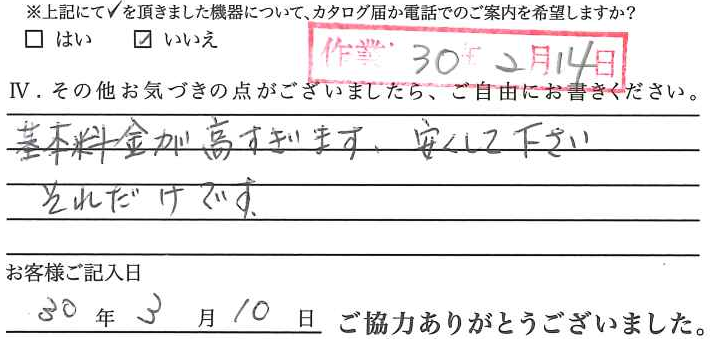 ※上記にて✓を頂きました機器について、カタログ届か電話でのご案内を希望しますか?
□ はい ☑ いいえ
作業 30年 2月14日
Ⅳ．その他お気づきの点がございましたら、ご自由にお書きください。
基本料金が高すぎます、安くして下さい
それだけです。
お客様ご記入日
30 年 3 月 10 日 ご協力ありがとうございました。